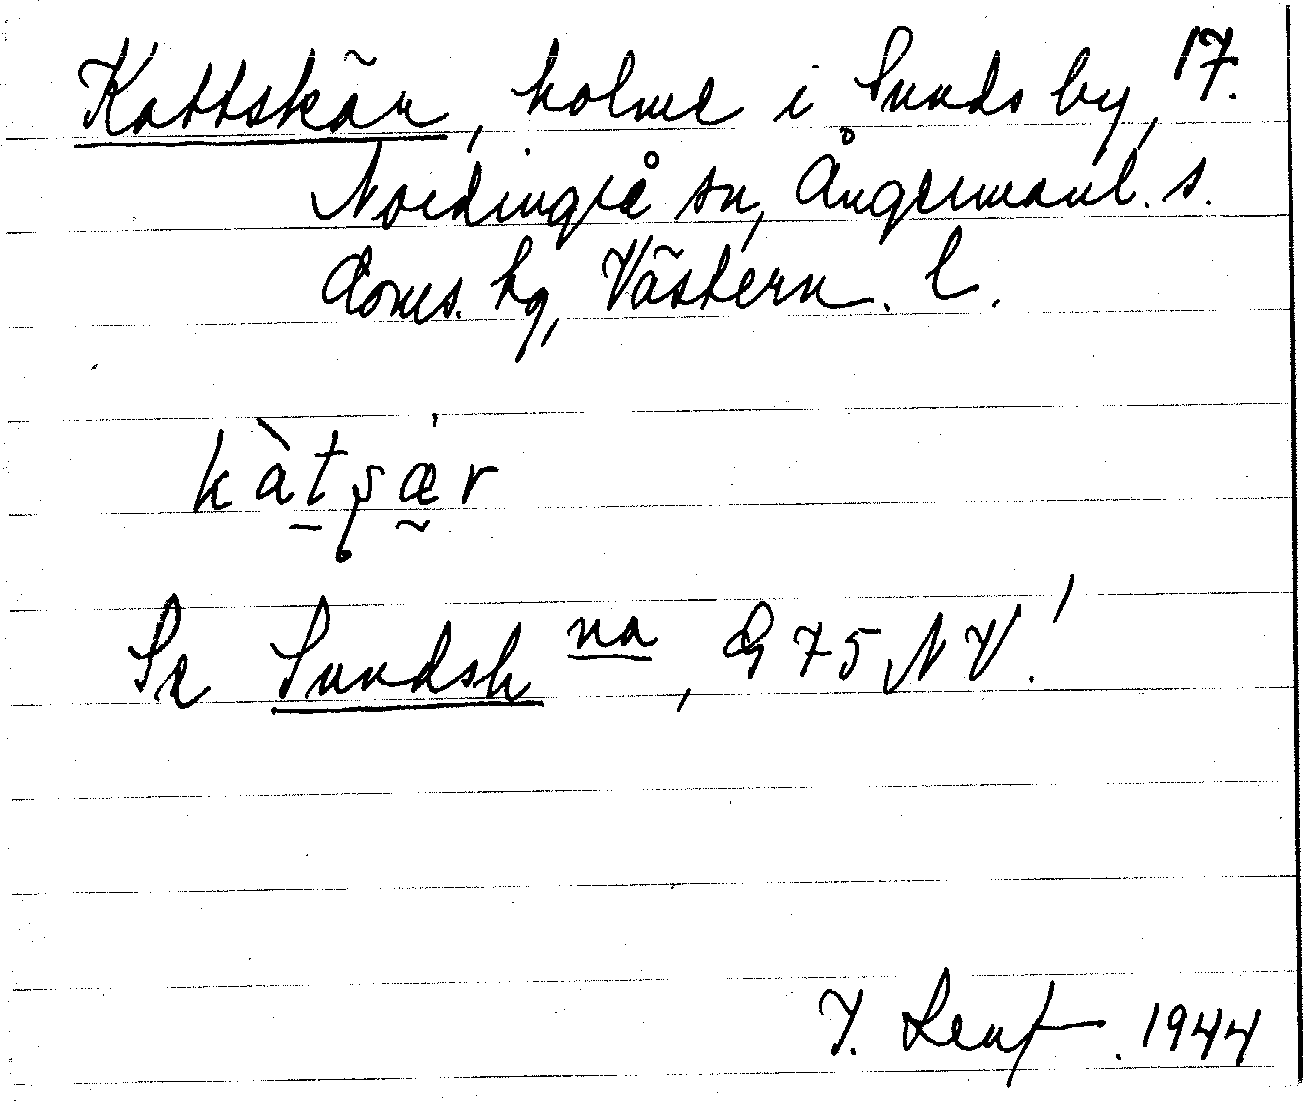 Kattskär, holme i Sunds by, 17.
Nordingrå sn, Ångermanl. s.
doms. hg, Västern. l.
kàtʂæ̀r
Se Sundsh na, G 75 NV!
. 1944